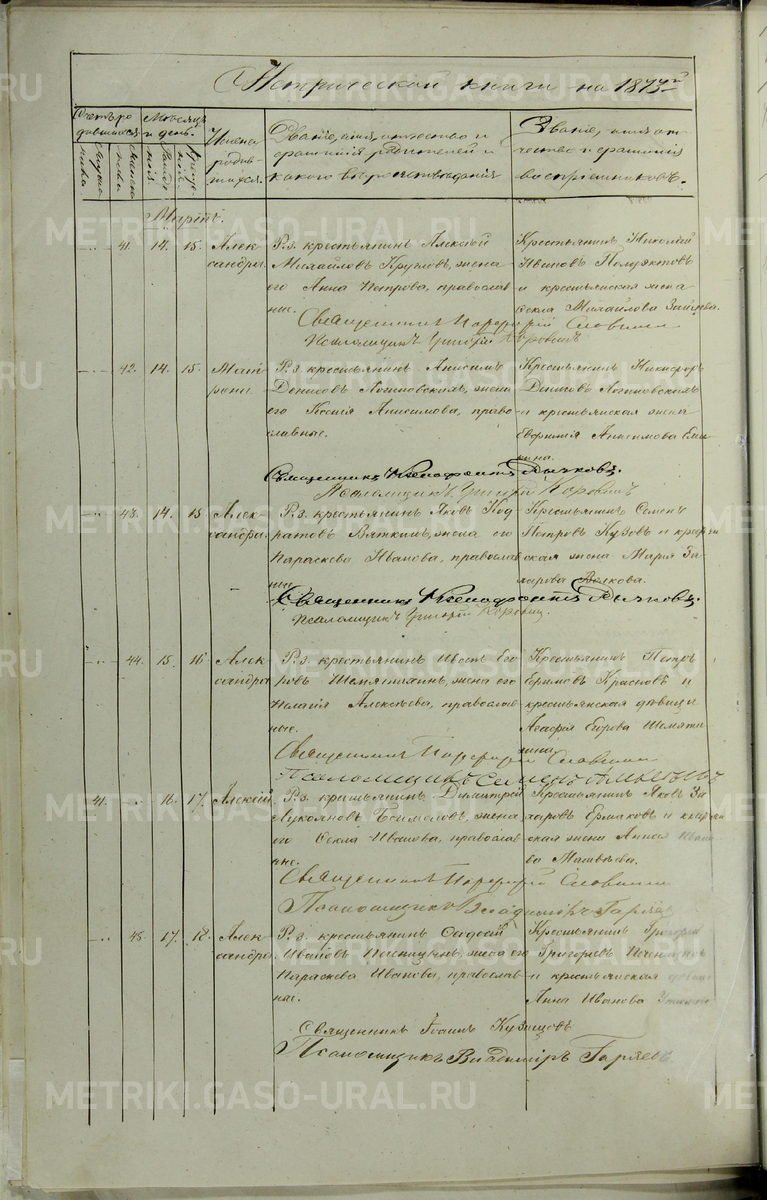 Метрической книги на 1873й
Счетъ родившихся
мужеска
женска
Мѣсяцъ и день
рожденія
крещенія
Имена родившихся.
Званіе, имя, отчество и фамилія родителей и какого вѣроисповѣданія
Званіе, имя, отчество и фамилія воспріемниковъ.
Мартъ.
41. 14. 15. Александра.
Р. з. крестьянинъ Алексѣй
Михайловъ Кругловъ, жена
его Анна Петрова, православные.
Крестьянинъ Николай
Ивановъ Полуяктовъ
и крестьянская жена
Ѳекла Михайлова Зайцева.
Священникъ Порфирій Словцовъ
Псаломщикъ Григорій Коровинъ
42. 14. 15.
Р. з. крестьянинъ Анисимъ
Денисовъ Логиновскихъ, жена
его Ксенія Анисимова, православные.
Крестьянинъ Никифоръ
Денисовъ Логиновскихъ
и крестьянская жена
Евфимія Анисимова
Священникъ Ксенофонтъ Рычковъ.
Псаломщикъ Григорій Коровинъ
43. 14. 15. Александра.
Р. з. крестьянинъ Яковъ Кодратовъ Вяткинъ, жена его
Параскева Иванова, православные.
Крестьянинъ Семенъ
Петровъ Кузовъ и крестьянская жена Марія Захарова Волкова.
Священникъ Ксенофонтъ Рычковъ.
Псаломщикъ Григорій Коровинъ.
44. 15. 16. Александра
Р. з. крестьянинъ Егоровъ Шемятихинъ, жена его
Пелагія Алексѣева, православные.
Крестьянинъ Петръ
Ефимовъ Красновъ и
крестьянская дѣвица
Агафія Егорова
Священникъ Порфирій Словцовъ
Псаломщикъ
41. 16. 17. Алексій.
Р. з. крестьянинъ Димитрій
Лукояновъ, жена
его Ѳекла Иванова, православные.
Крестьянинъ Яковъ Захаровъ Ермаковъ и крестьянская жена Анна
Матвѣева.
Священникъ Порфирій Словцовъ
Псаломщикъ Владимiръ Гаряевъ
45. 17. 18. Александра.
Р. з. крестьянинъ
Ивановъ, жена его
Параскева Иванова, православные.
Крестьянинъ Григорій
Григорьевъ
и крестьянская дѣвица
Анна Иванова
Священникъ Іоаннъ Кузнецовъ
Псаломщикъ Владимiръ Гаряевъ
METRIKI.GASO-URAL.RU